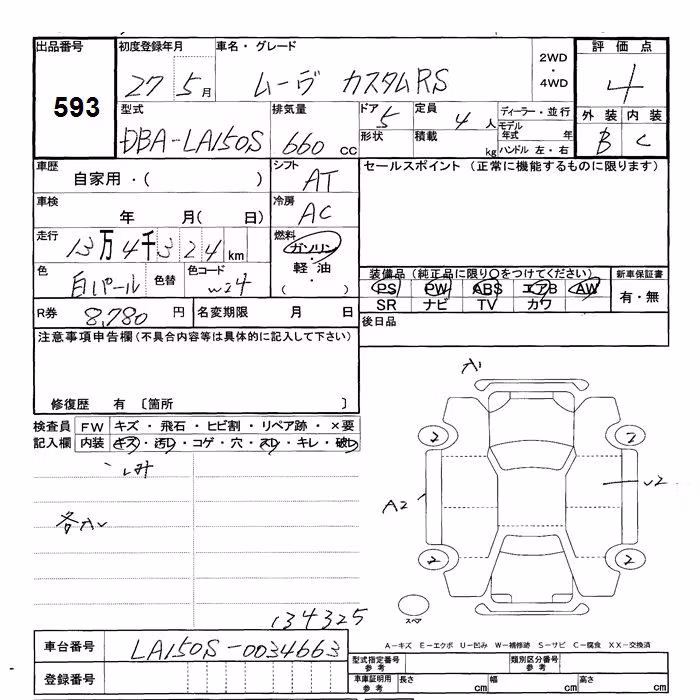 出品番号 初度登録年月 車名・グレード 2WD・4WD 評価点
593 27 5月 ムーヴ カスタムRS 4
型式 排気量 ドア 5 定員 4人 ディーラー・並行 外装 内装
DBA-LA150S 660cc 形状 積載 kg モデル年式 年 B C
ハンドル 左・右
車歴 シフト セールスポイント(正常に機能するものに限ります)
自家用・( ) AT
車検 冷房
年 月( 日) AC
走行 燃料
13万4千324km ガソリン・軽油・( )
色 色替 色コード 装備品(純正品に限り〇をつけてください) 新車保証書
白パール W24 PS PW ABS エアB AW 有・無
SR ナビ TV カワ
R券 8,780円 名変期限 月 日 後日品
注意事項申告欄(不具合内容等は具体的に記入して下さい)
修復歴 有 〔箇所 〕
検査員 FW キズ・飛石・ヒビ割・リペア跡・×要
記入欄 内装 キズ・汚レ・コゲ・穴・スレ・キレ・破レ
シミ
A1
2 2
A2 2
2 2
134325
スペア
A-キズ E-エクボ U-凹み W-補修跡 S-サビ C-腐食 XX-交換済
車台番号 LA150S-0034663
型式指定番号 参考 類別区分番号 参考
登録番号 車庫証明用 参考 長さ cm 幅 cm 高さ cm